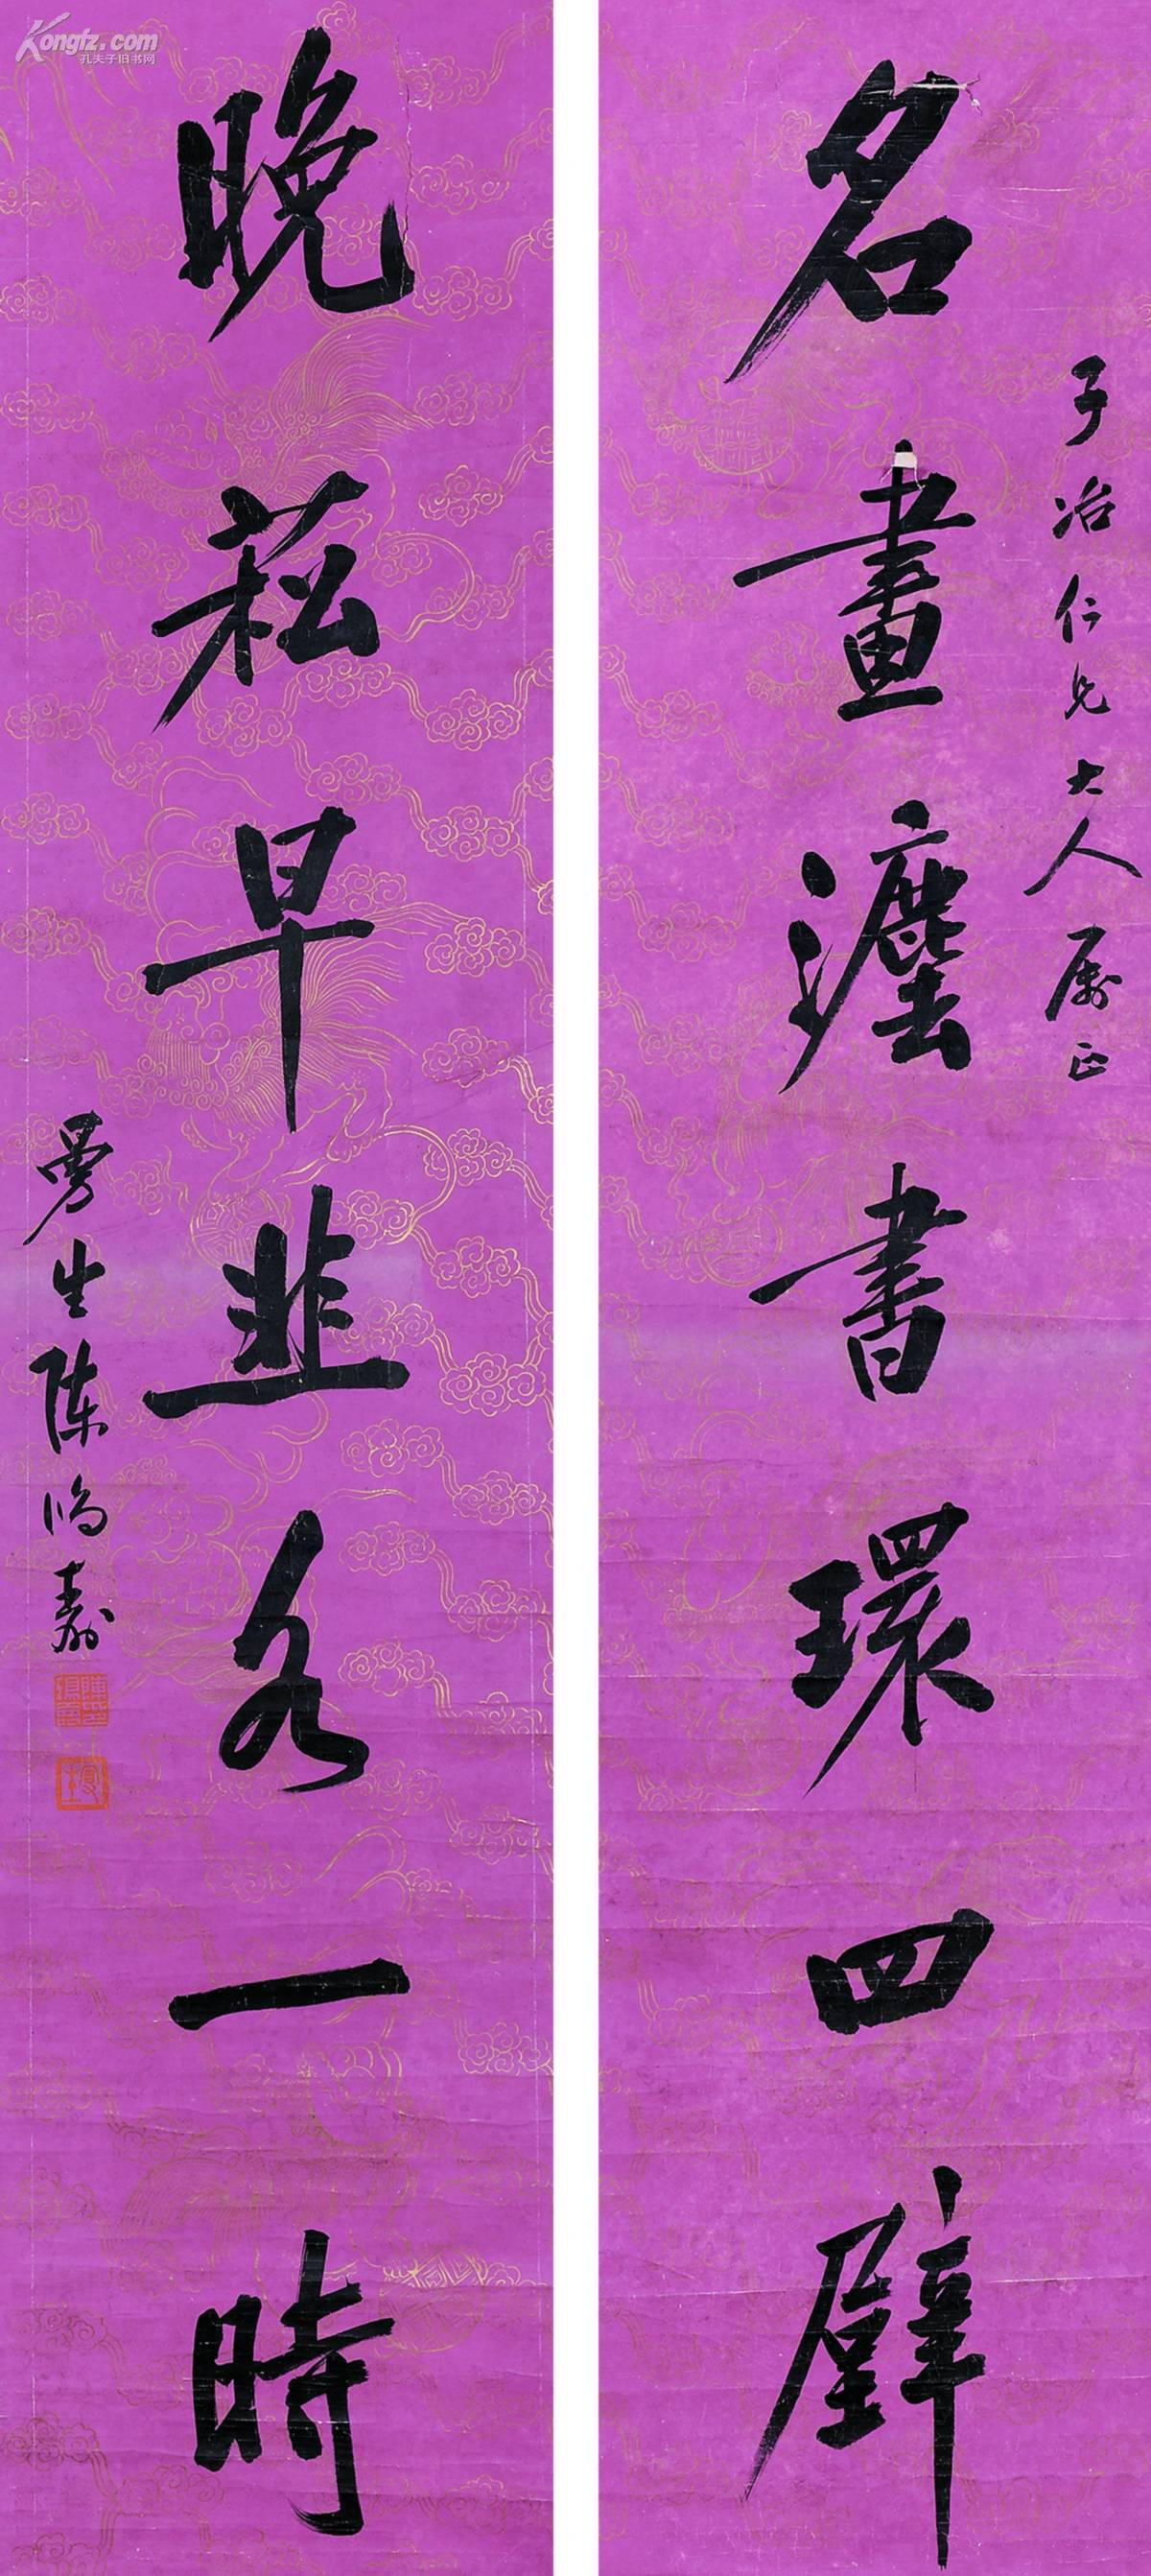 子冶仁兄大人属正
名畫灋書環四壁
晚菘早韭各一時
曼生陳鴻壽
Kongfz.com
孔夫子旧书网